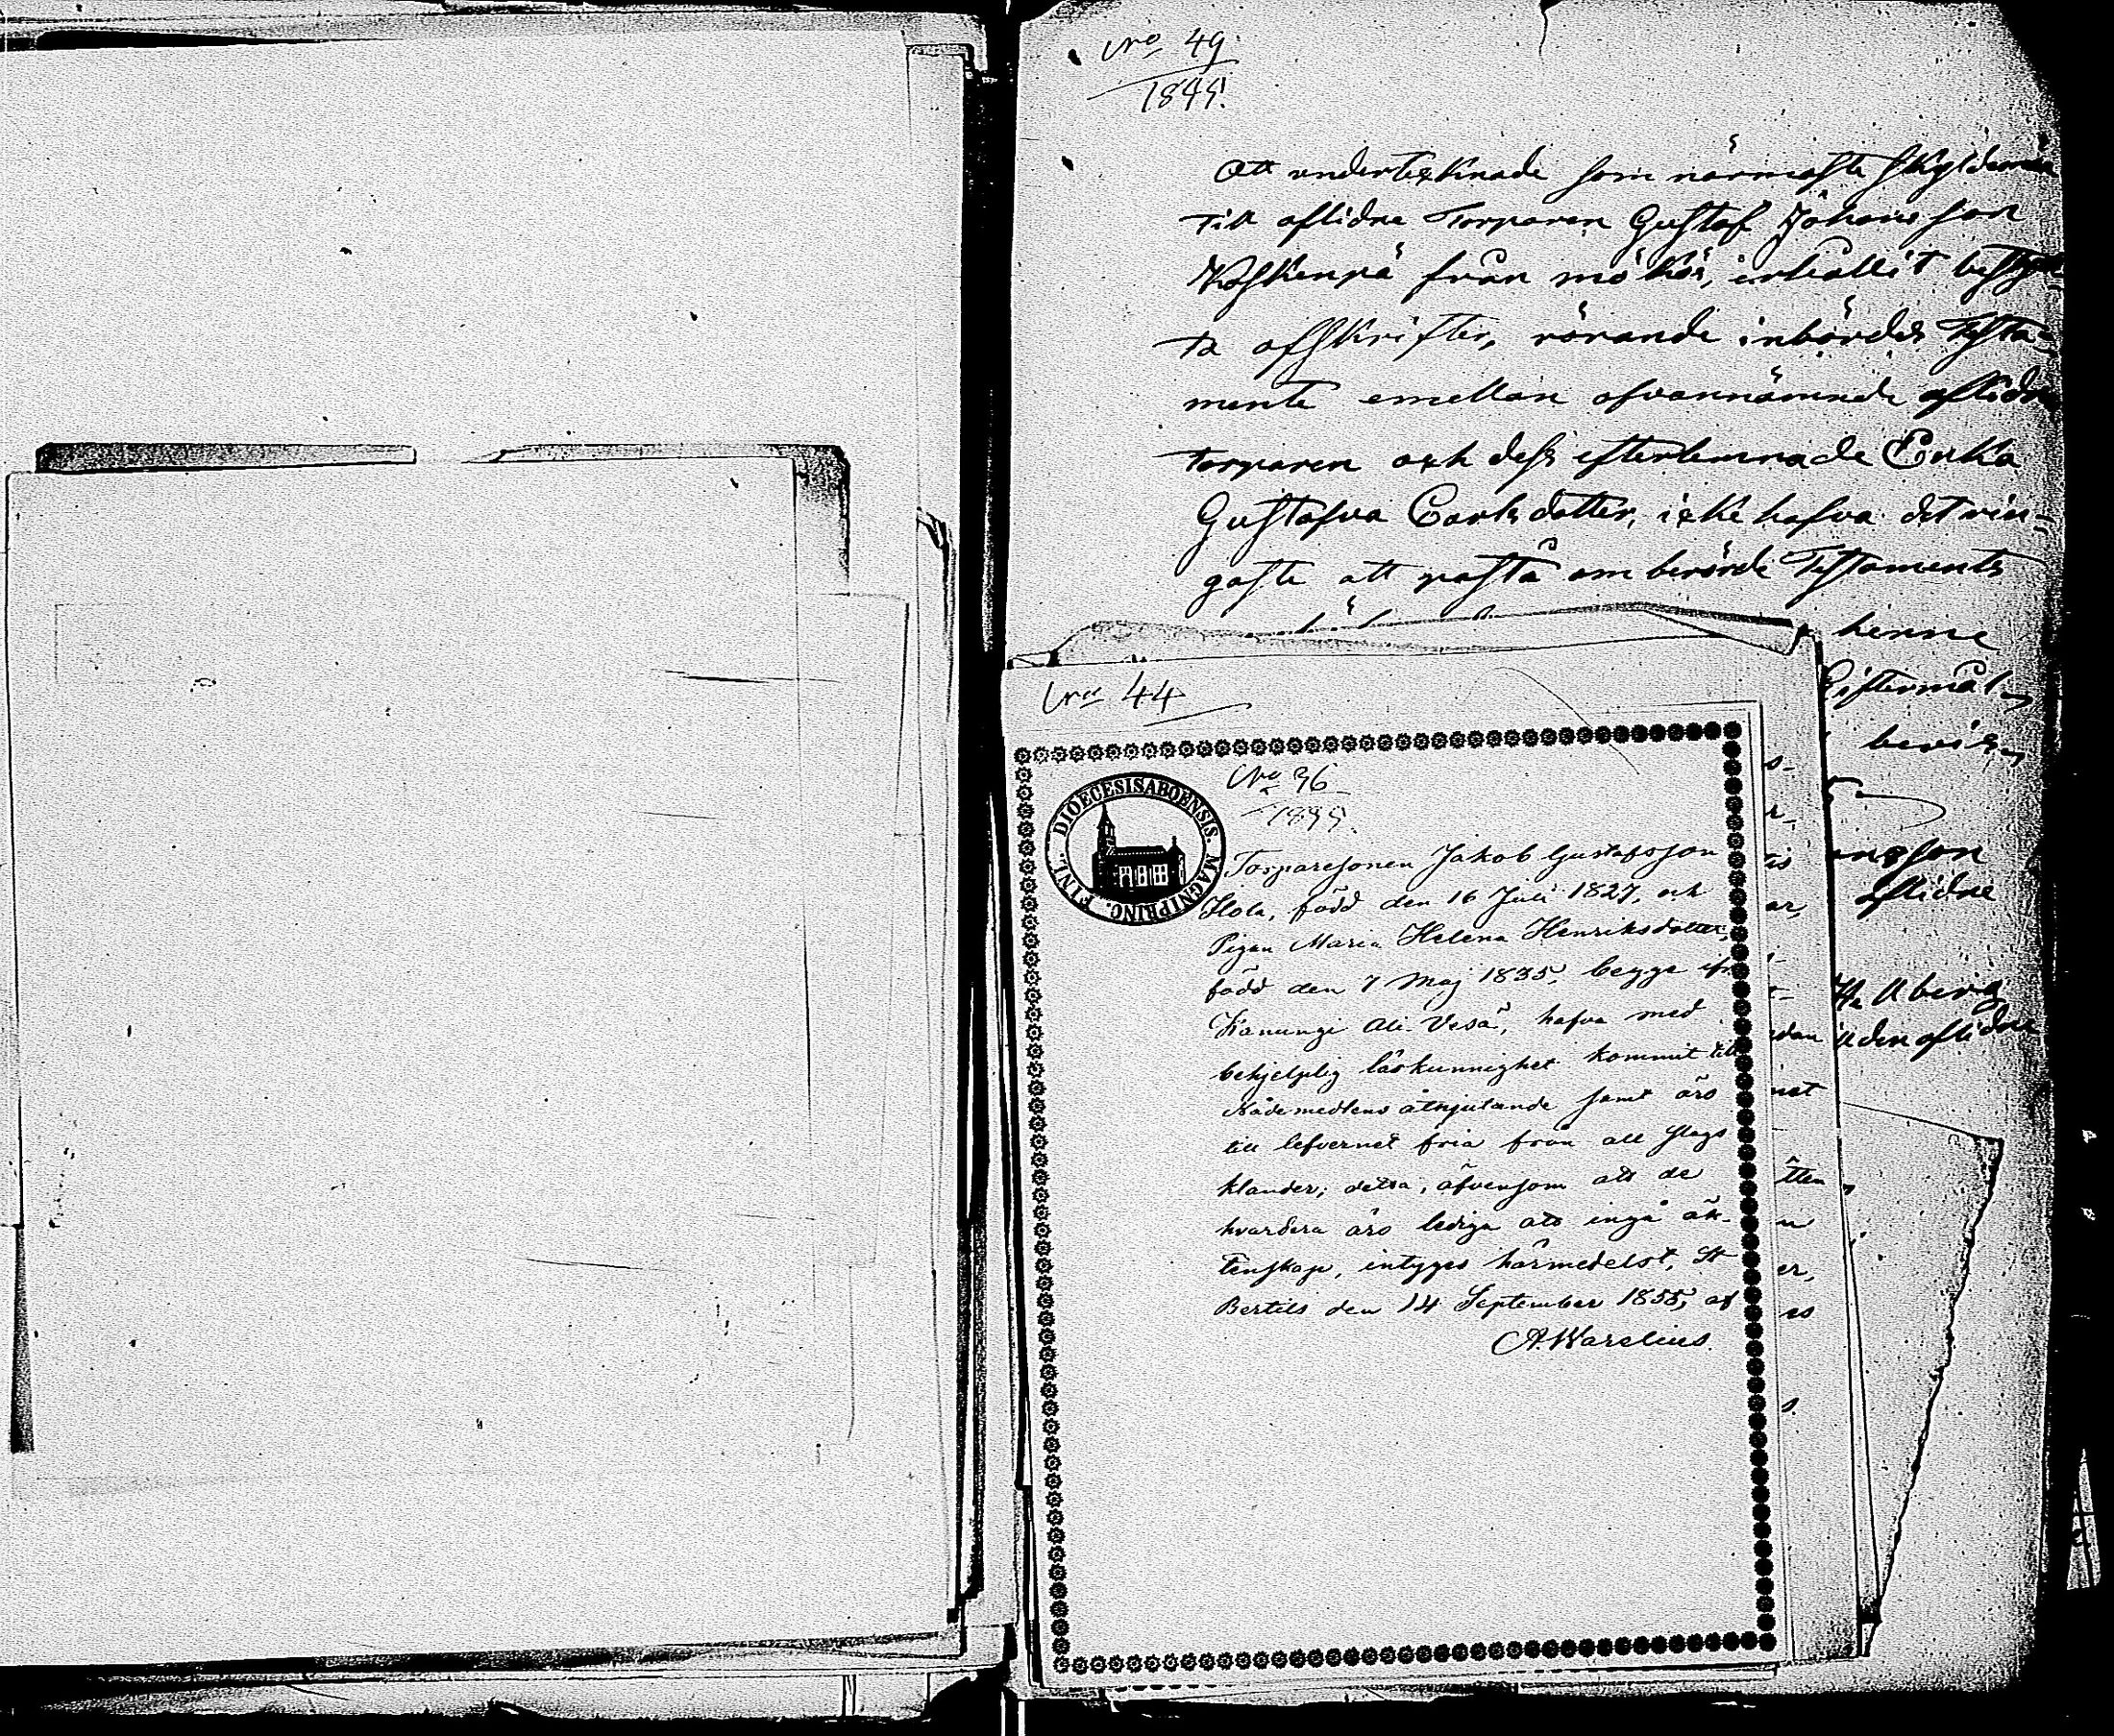 Nro 49
1855.
Att undertecknade som närmaste skyldemän
till aflidne Torparen Gustaf Johansson
Koskenpä från mökös, erhållit bestyrk-
ta afskrifter, rörande inbördes Testa-
mente emellan ofvannämnde aflidne
torparen och dess efterlemnade Enka
Gustafva Carlsdotter, icke hafva det rin-
gaste att påstå om berörde Testaments
henne
Giftermål
bevis
nsson
aflidne
Hellberg
till den aflidne
Nro 44
DIOECESIS ABOENSIS. MAGNI PRINC. FINL.
Nro 36
1855.
Torparesonen Jakob Gustafsson
Hola, född den 16 Juli 1827, och
Pigan Maria Helena Henriksdotter,
född den 7 Maj 1835, begge ifr.
Kanungi Ali Vesä, hafva med
behjelplig läskunnighet kommit till
Nådemedlens åtnjutande samt äro
till lefvernet fria från all slags
klander; detta, äfvensom att de
hvardera äro lediga att ingå äk-
tenskap, intygas härmedelst, St
Bertils den 14 September 1855, af
A. Warelius.